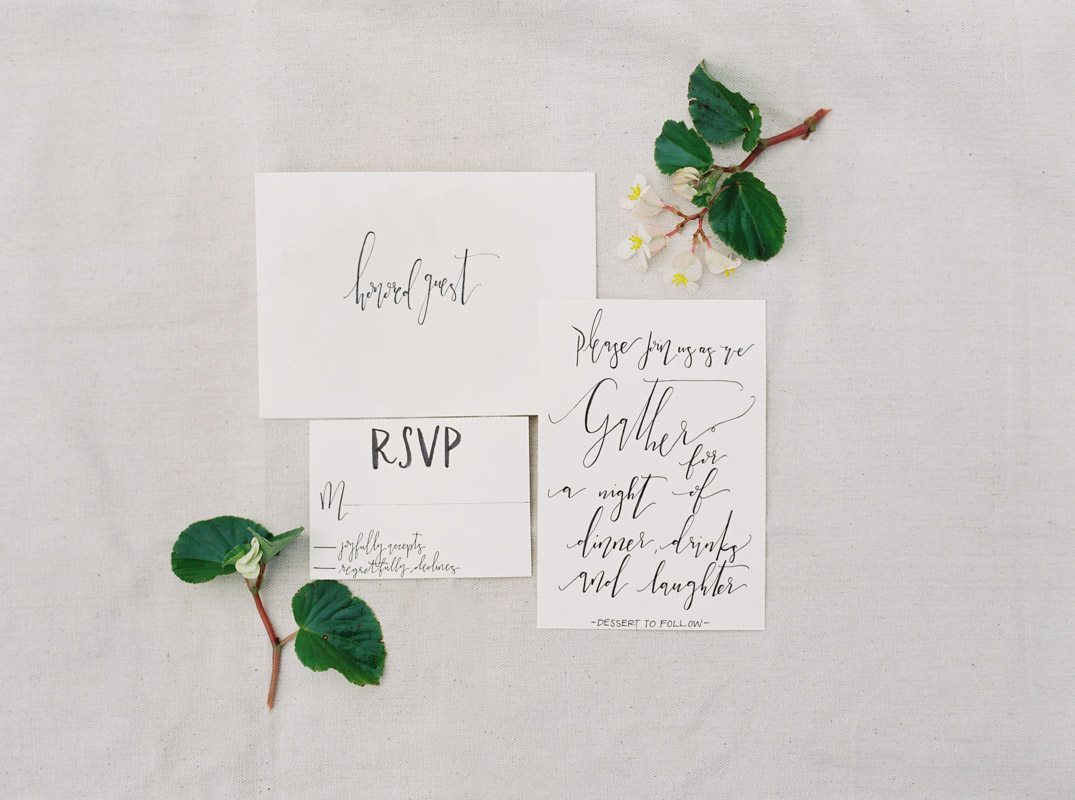 honored guest
RSVP
M
joyfully accepts
regretfully declines
please join us as we
Gather
for
a night of
dinner, drinks
and laughter
-DESSERT TO FOLLOW-